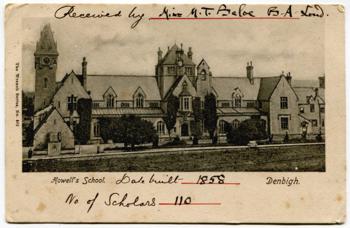 Received by Miss M. T. Baloe B.A. Lond.
The Wrench Series, No.
Howell's School. Date built 1858 Denbigh.
No of Scholars 110